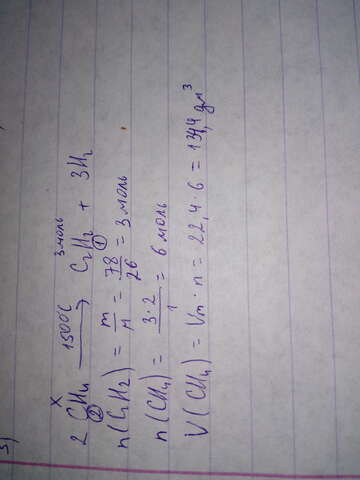 3)
x 1500°C 3 моль
2 CH₄ ⟶ C₂H₂ + 3H₂
② ①
n(C₂H₂) = m/M = 78/26 = 3 моль
n(CH₄) = 3·2/1 = 6 моль
V(CH₄) = Vm · n = 22,4 · 6 = 134,4 дм³